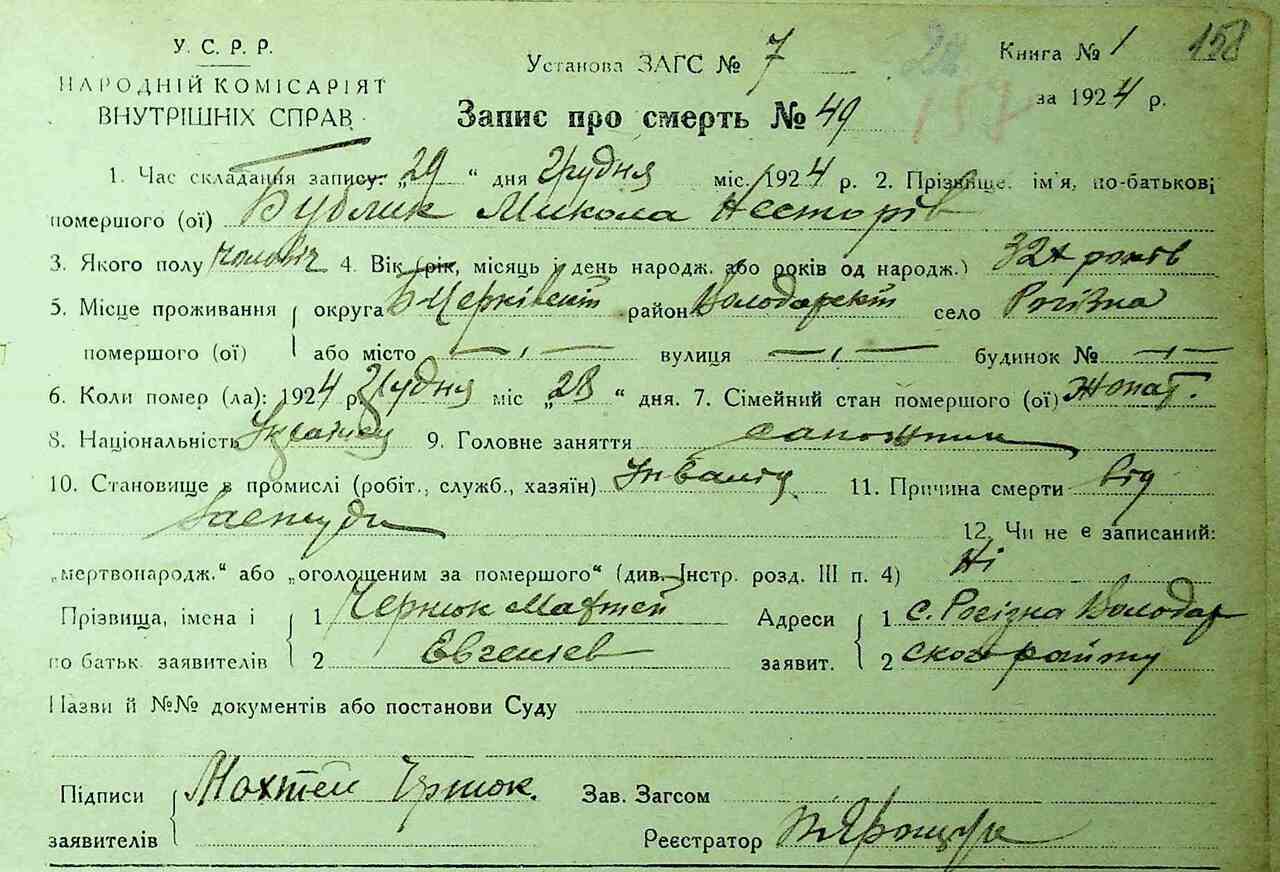 У. С. Р. Р.
НАРОДНІЙ КОМІСАРІЯТ
ВНУТРІШНІХ СПРАВ
Установа ЗАГС № 7
Книга № 1
158
за 1924 р.
157
Запис про смерть № 49
1. Час складання запису: „29“ дня Грудня міс. 1924 р. 2. Прізвище, ім'я, по-батькові
помершого (ої) Бублик Микола Несторів
3. Якого полу чоловіч 4. Вік (рік, місяць і день народж. або років од народж.) 32х років
5. Місце проживання округа Б Церківськ район Володарськ село Рогізна
помершого (ої) або місто — „ — вулиця — „ — будинок № — „ —
6. Коли помер (ла): 1924 р. Грудня міс „28“ дня. 7. Сімейний стан помершого (ої) Жонат.
8. Національність Українец 9. Головне заняття сапожник
10. Становище в промислі (робіт., служб., хазяїн) Інвалід 11. Причина смерти від
застуди 12. Чи не є записаний:
„мертвонародж.“ або „оголошеним за помершого“ (див. Інстр. розд. III п. 4) Ні
Прізвища, імена і 1 Чернюк Махтей Адреси 1 с. Рогізна Володар
по батьк. заявителів 2 Евгениев заявит. 2 ского району
Назви й №№ документів або постанови Суду
Підписи Махтей Чернюк. Зав. Загсом
заявителів Реєстратор